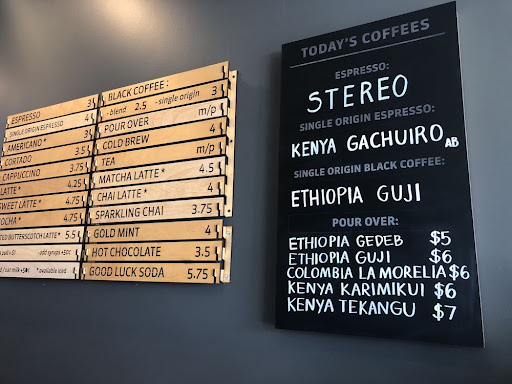 ESPRESSO 3
SINGLE ORIGIN ESPRESSO 4
AMERICANO * 3
CORTADO 3.5
CAPPUCCINO 3.75
LATTE * 4.25
SWEET LATTE * 4.75
MOCHA * 4.75
BUTTERSCOTCH LATTE * 5.5
- add syrups +50¢
*available iced
BLACK COFFEE : 3
- blend 2.5 - single origin 3
POUR OVER m/p
COLD BREW 4
TEA m/p
MATCHA LATTE * 4.5
CHAI LATTE * 4
SPARKLING CHAI 3.75
GOLD MINT 4
HOT CHOCOLATE 3.5
GOOD LUCK SODA 5.75
TODAY'S COFFEES
ESPRESSO:
STEREO
SINGLE ORIGIN ESPRESSO:
KENYA GACHUIRO AB
SINGLE ORIGIN BLACK COFFEE:
ETHIOPIA GUJI
POUR OVER:
ETHIOPIA GEDEB $5
ETHIOPIA GUJI $6
COLOMBIA LA MORELIA $6
KENYA KARIMIKUI $6
KENYA TEKANGU $7